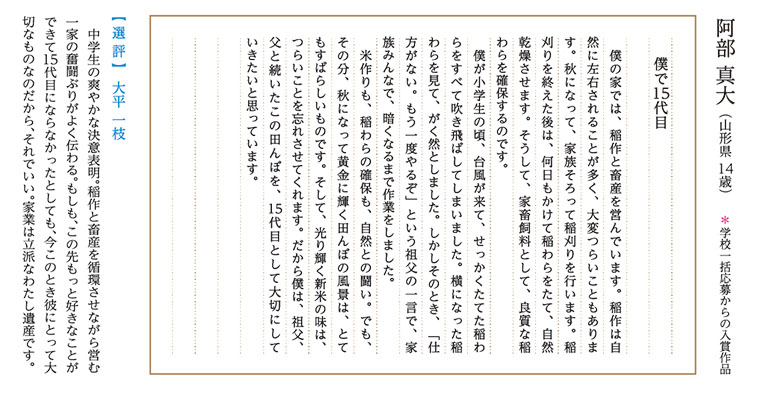 阿部 真大（山形県 14歳） ＊学校一括応募からの入賞作品
僕で15代目
僕の家では、稲作と畜産を営んでいます。稲作は自
然に左右されることが多く、大変つらいこともありま
す。秋になって、家族そろって稲刈りを行います。稲
刈りを終えた後は、何日もかけて稲わらをたて、自然
乾燥させます。そうして、家畜飼料として、良質な稲
わらを確保するのです。
僕が小学生の頃、台風が来て、せっかくたてた稲わ
らをすべて吹き飛ばしてしまいました。横になった稲
わらを見て、がく然としました。しかしそのとき、「仕
方がない。もう一度やるぞ」という祖父の一言で、家
族みんなで、暗くなるまで作業をしました。
米作りも、稲わらの確保も、自然との闘い。でも、
その分、秋になって黄金に輝く田んぼの風景は、とて
もすばらしいものです。そして、光り輝く新米の味は、
つらいことを忘れさせてくれます。だから僕は、祖父、
父と続いたこの田んぼを、15代目として大切にして
いきたいと思っています。
【選評】 大平 一枝
中学生の爽やかな決意表明。稲作と畜産を循環させながら営む
一家の奮闘ぶりがよく伝わる。もしも、この先もっと好きなことが
できて15代目にならなかったとしても、今このとき彼にとって大
切なものなのだから、それでいい。家業は立派なわたし遺産です。